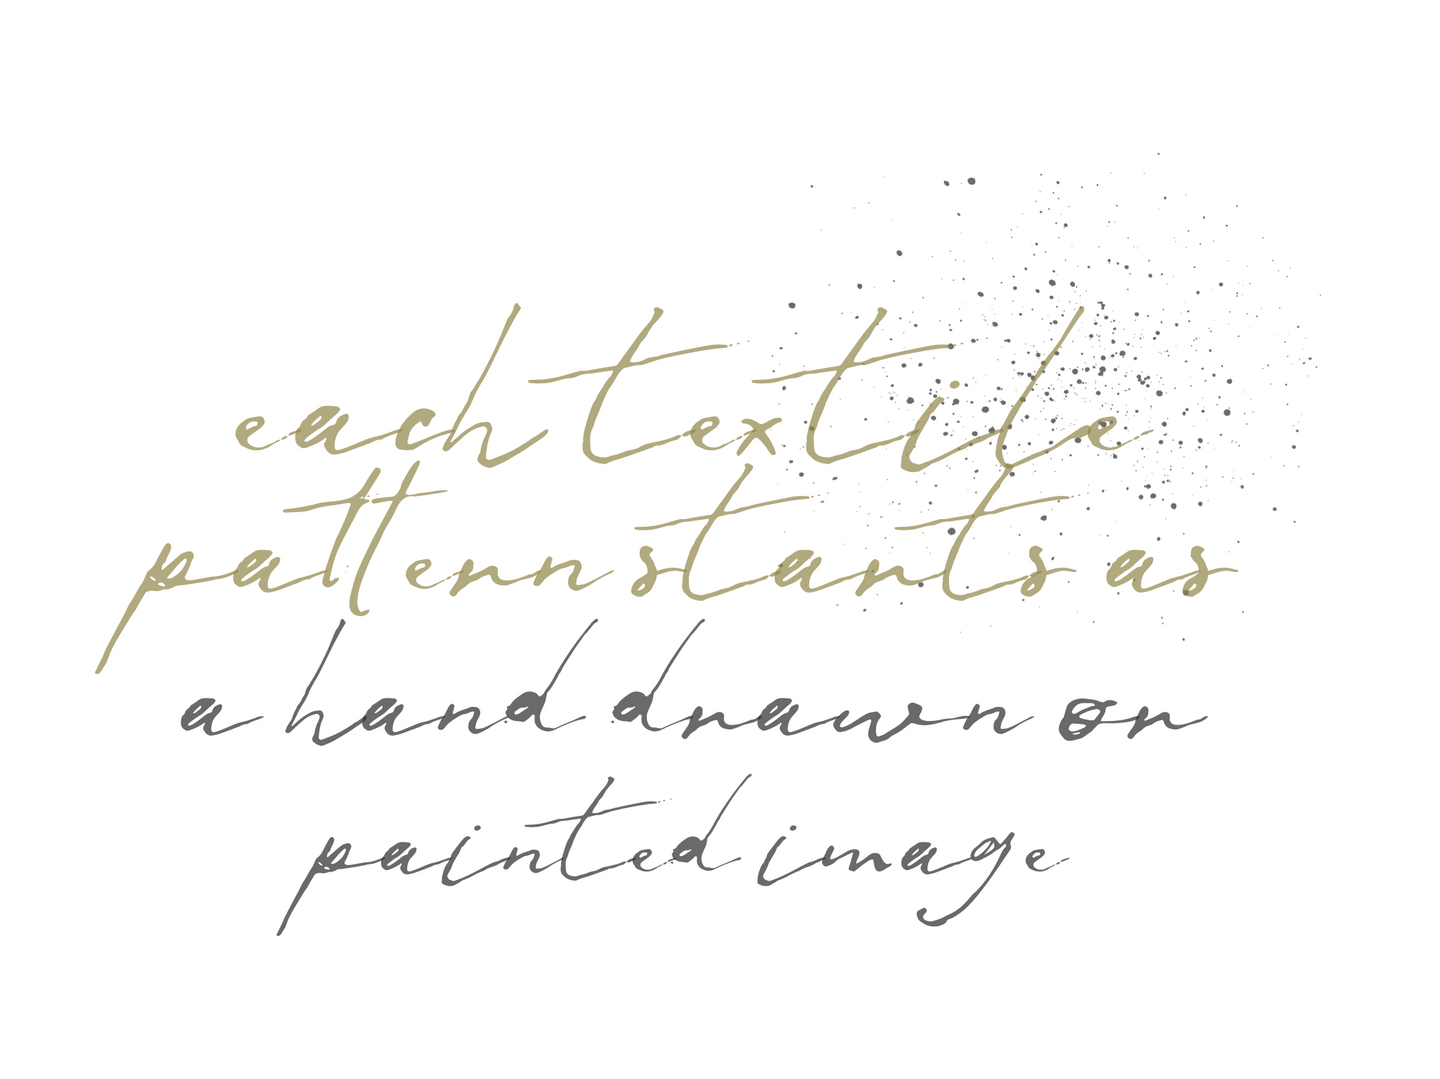 each textile
pattern starts as
a hand drawn or
painted image